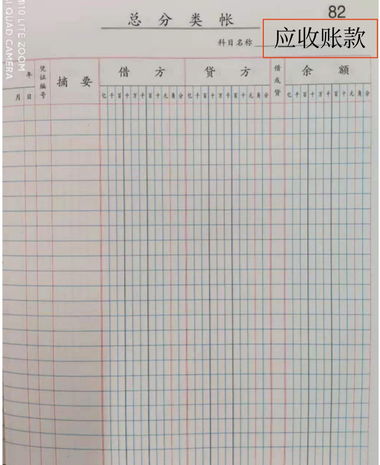 10 LITE ZOOM
QUAD CAMERA
82
总分类帐
科目名称 应收账款
年 凭证编号 摘要 借方 贷方 借或贷 余额
月 日 亿千百十万千百十元角分 亿千百十万千百十元角分 亿千百十万千百十元角分